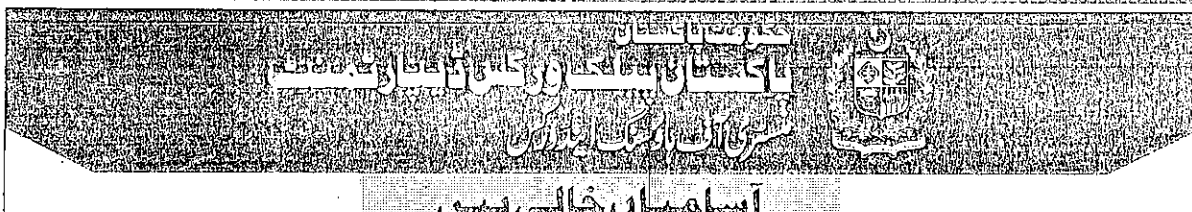 حکومت پاکستان
پاکستان پبلک ورکس ڈیپارٹمنٹ
منسٹری آف ہاؤسنگ اینڈ ورکس
آسامیاں خالی ہیں